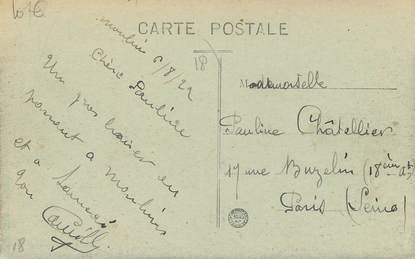 CARTE POSTALE
18
Moulins 6/8/22
Chère Pauline
Un gros baiser en
passant a moulins
et a
Camille
18
Mademoiselle
Pauline Châtellier
17 rue Buzelin (18ème
Paris (Seine)